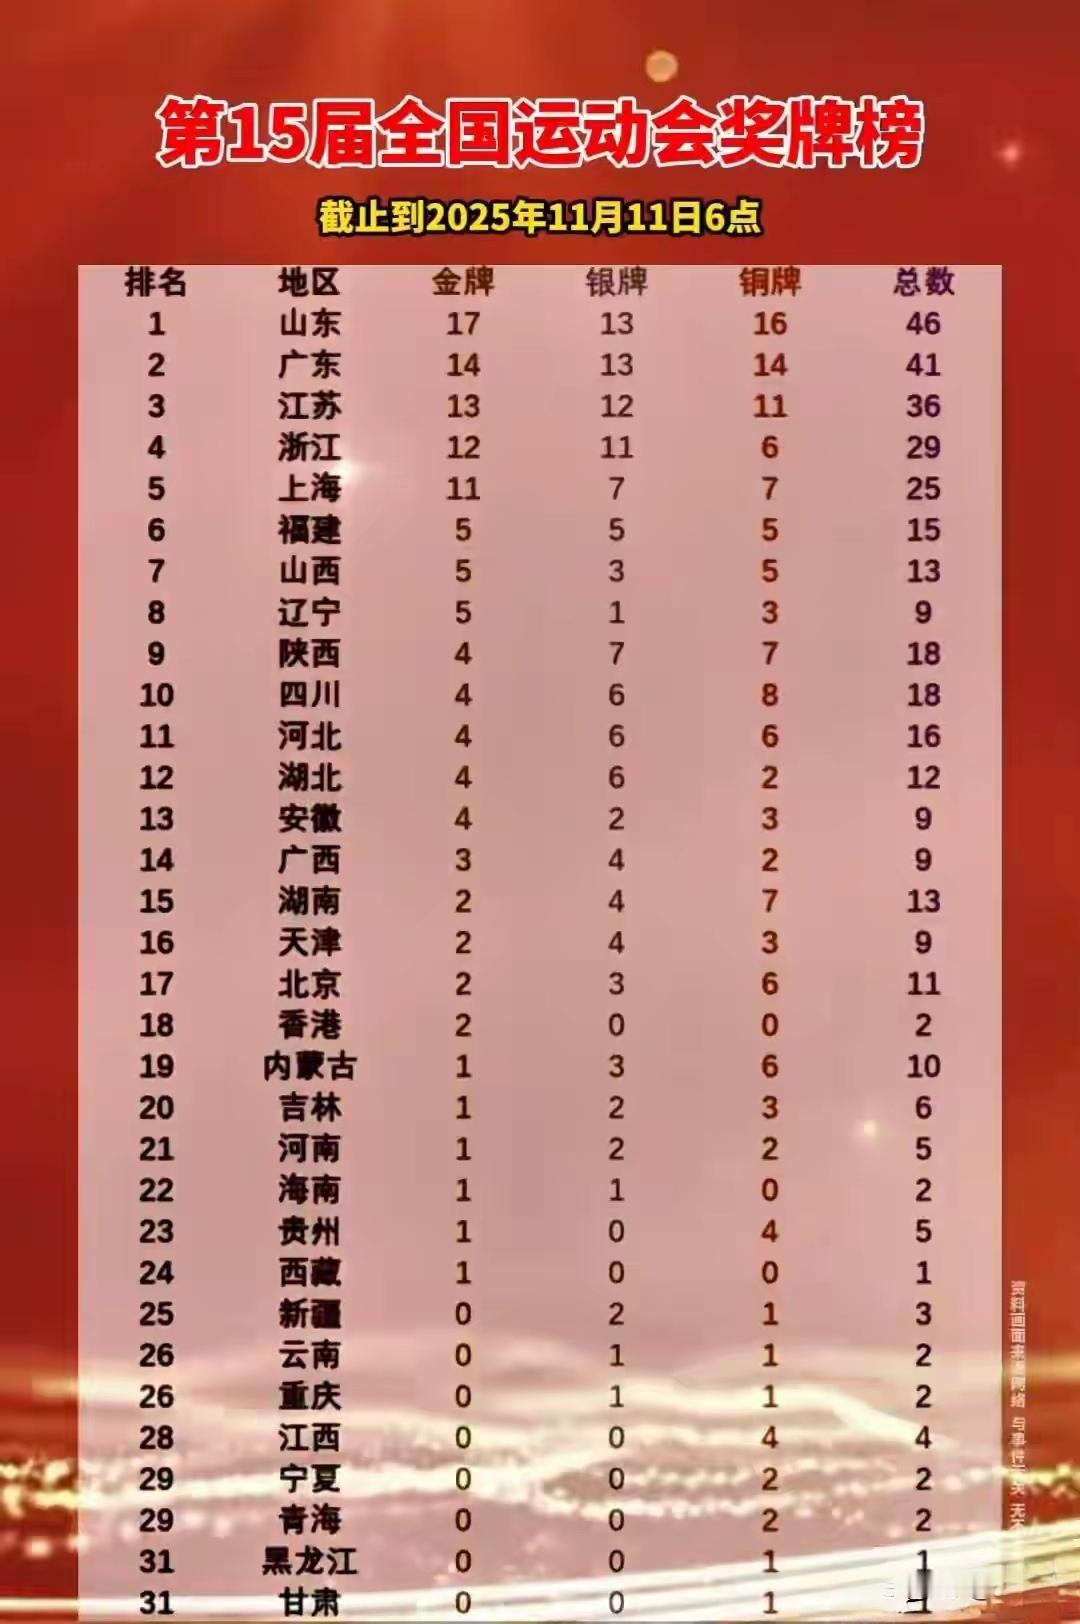 第15届全国运动会奖牌榜
截止到2025年11月11日6点
排名 地区 金牌 银牌 铜牌 总数
1 山东 17 13 16 46
2 广东 14 13 14 41
3 江苏 13 12 11 36
4 浙江 12 11 6 29
5 上海 11 7 7 25
6 福建 5 5 5 15
7 山西 5 3 5 13
8 辽宁 5 1 3 9
9 陕西 4 7 7 18
10 四川 4 6 8 18
11 河北 4 6 6 16
12 湖北 4 6 2 12
13 安徽 4 2 3 9
14 广西 3 4 2 9
15 湖南 2 4 7 13
16 天津 2 4 3 9
17 北京 2 3 6 11
18 香港 2 0 0 2
19 内蒙古 1 3 6 10
20 吉林 1 2 3 6
21 河南 1 2 2 5
22 海南 1 1 0 2
23 贵州 1 0 4 5
24 西藏 1 0 0 1
25 新疆 0 2 1 3
26 云南 0 1 1 2
26 重庆 0 1 1 2
28 江西 0 0 4 4
29 宁夏 0 0 2 2
29 青海 0 0 2 2
31 黑龙江 0 0 1 1
31 甘肃 0 0 1
资料画面来 网络 与事件 无